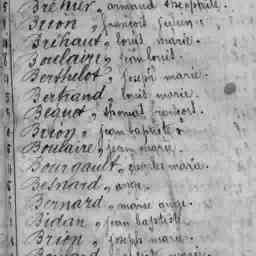 Bréhier, armand théophile.
Brion, françois julien.
Bréhaut, louis marie.
Boulaire, jean louis.
Berthelot, joseph marie.
Bertrand, louis marie.
Benoit, thomas françois.
Brion, jean baptiste.
Boulaire, jean marie.
Bourgault, charles marie.
Besnard, ange.
Bernard, marie ange.
Bidan, jean baptiste.
Brion, joseph marie.
marie